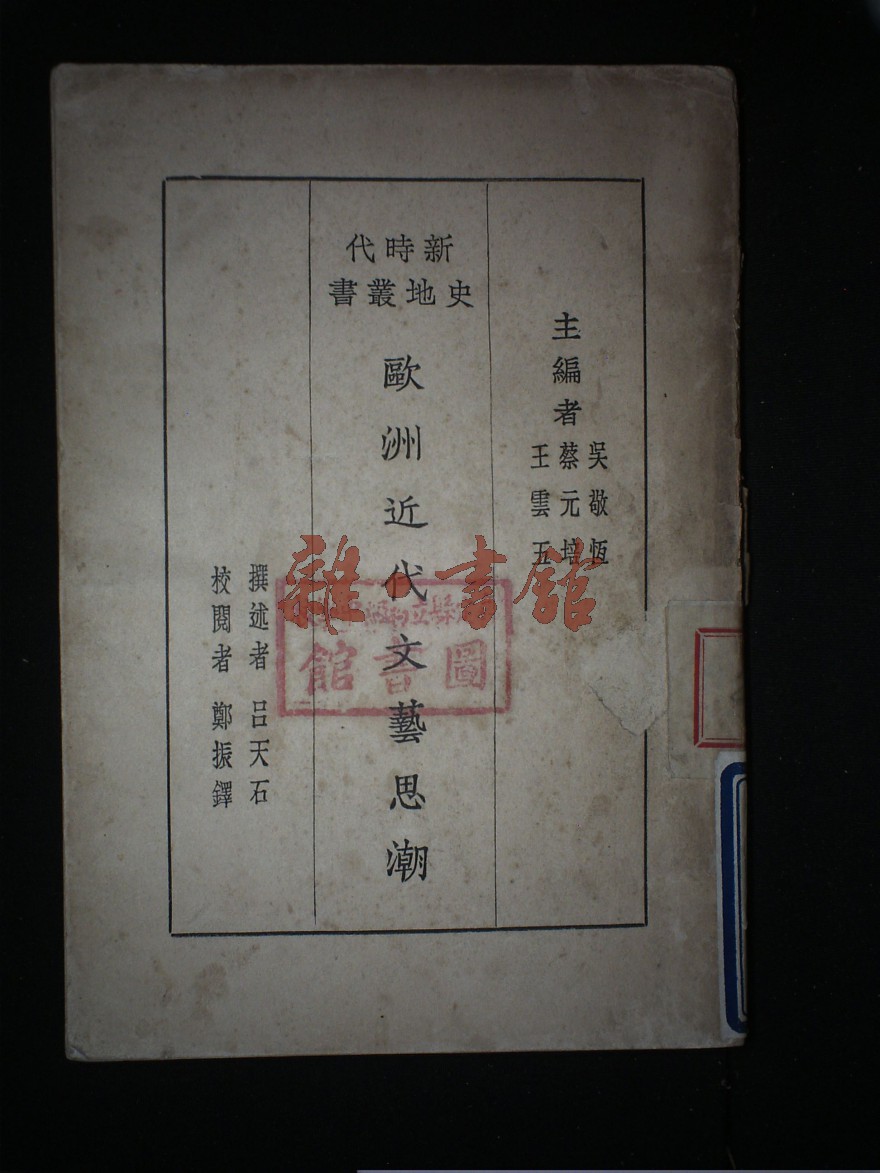 主編者
吳敬恆
蔡元培
王雲五
新時代
史地叢書
歐洲近代文藝思潮
撰述者 呂天石
校閱者 鄭振鐸
雜·書館
圖書館